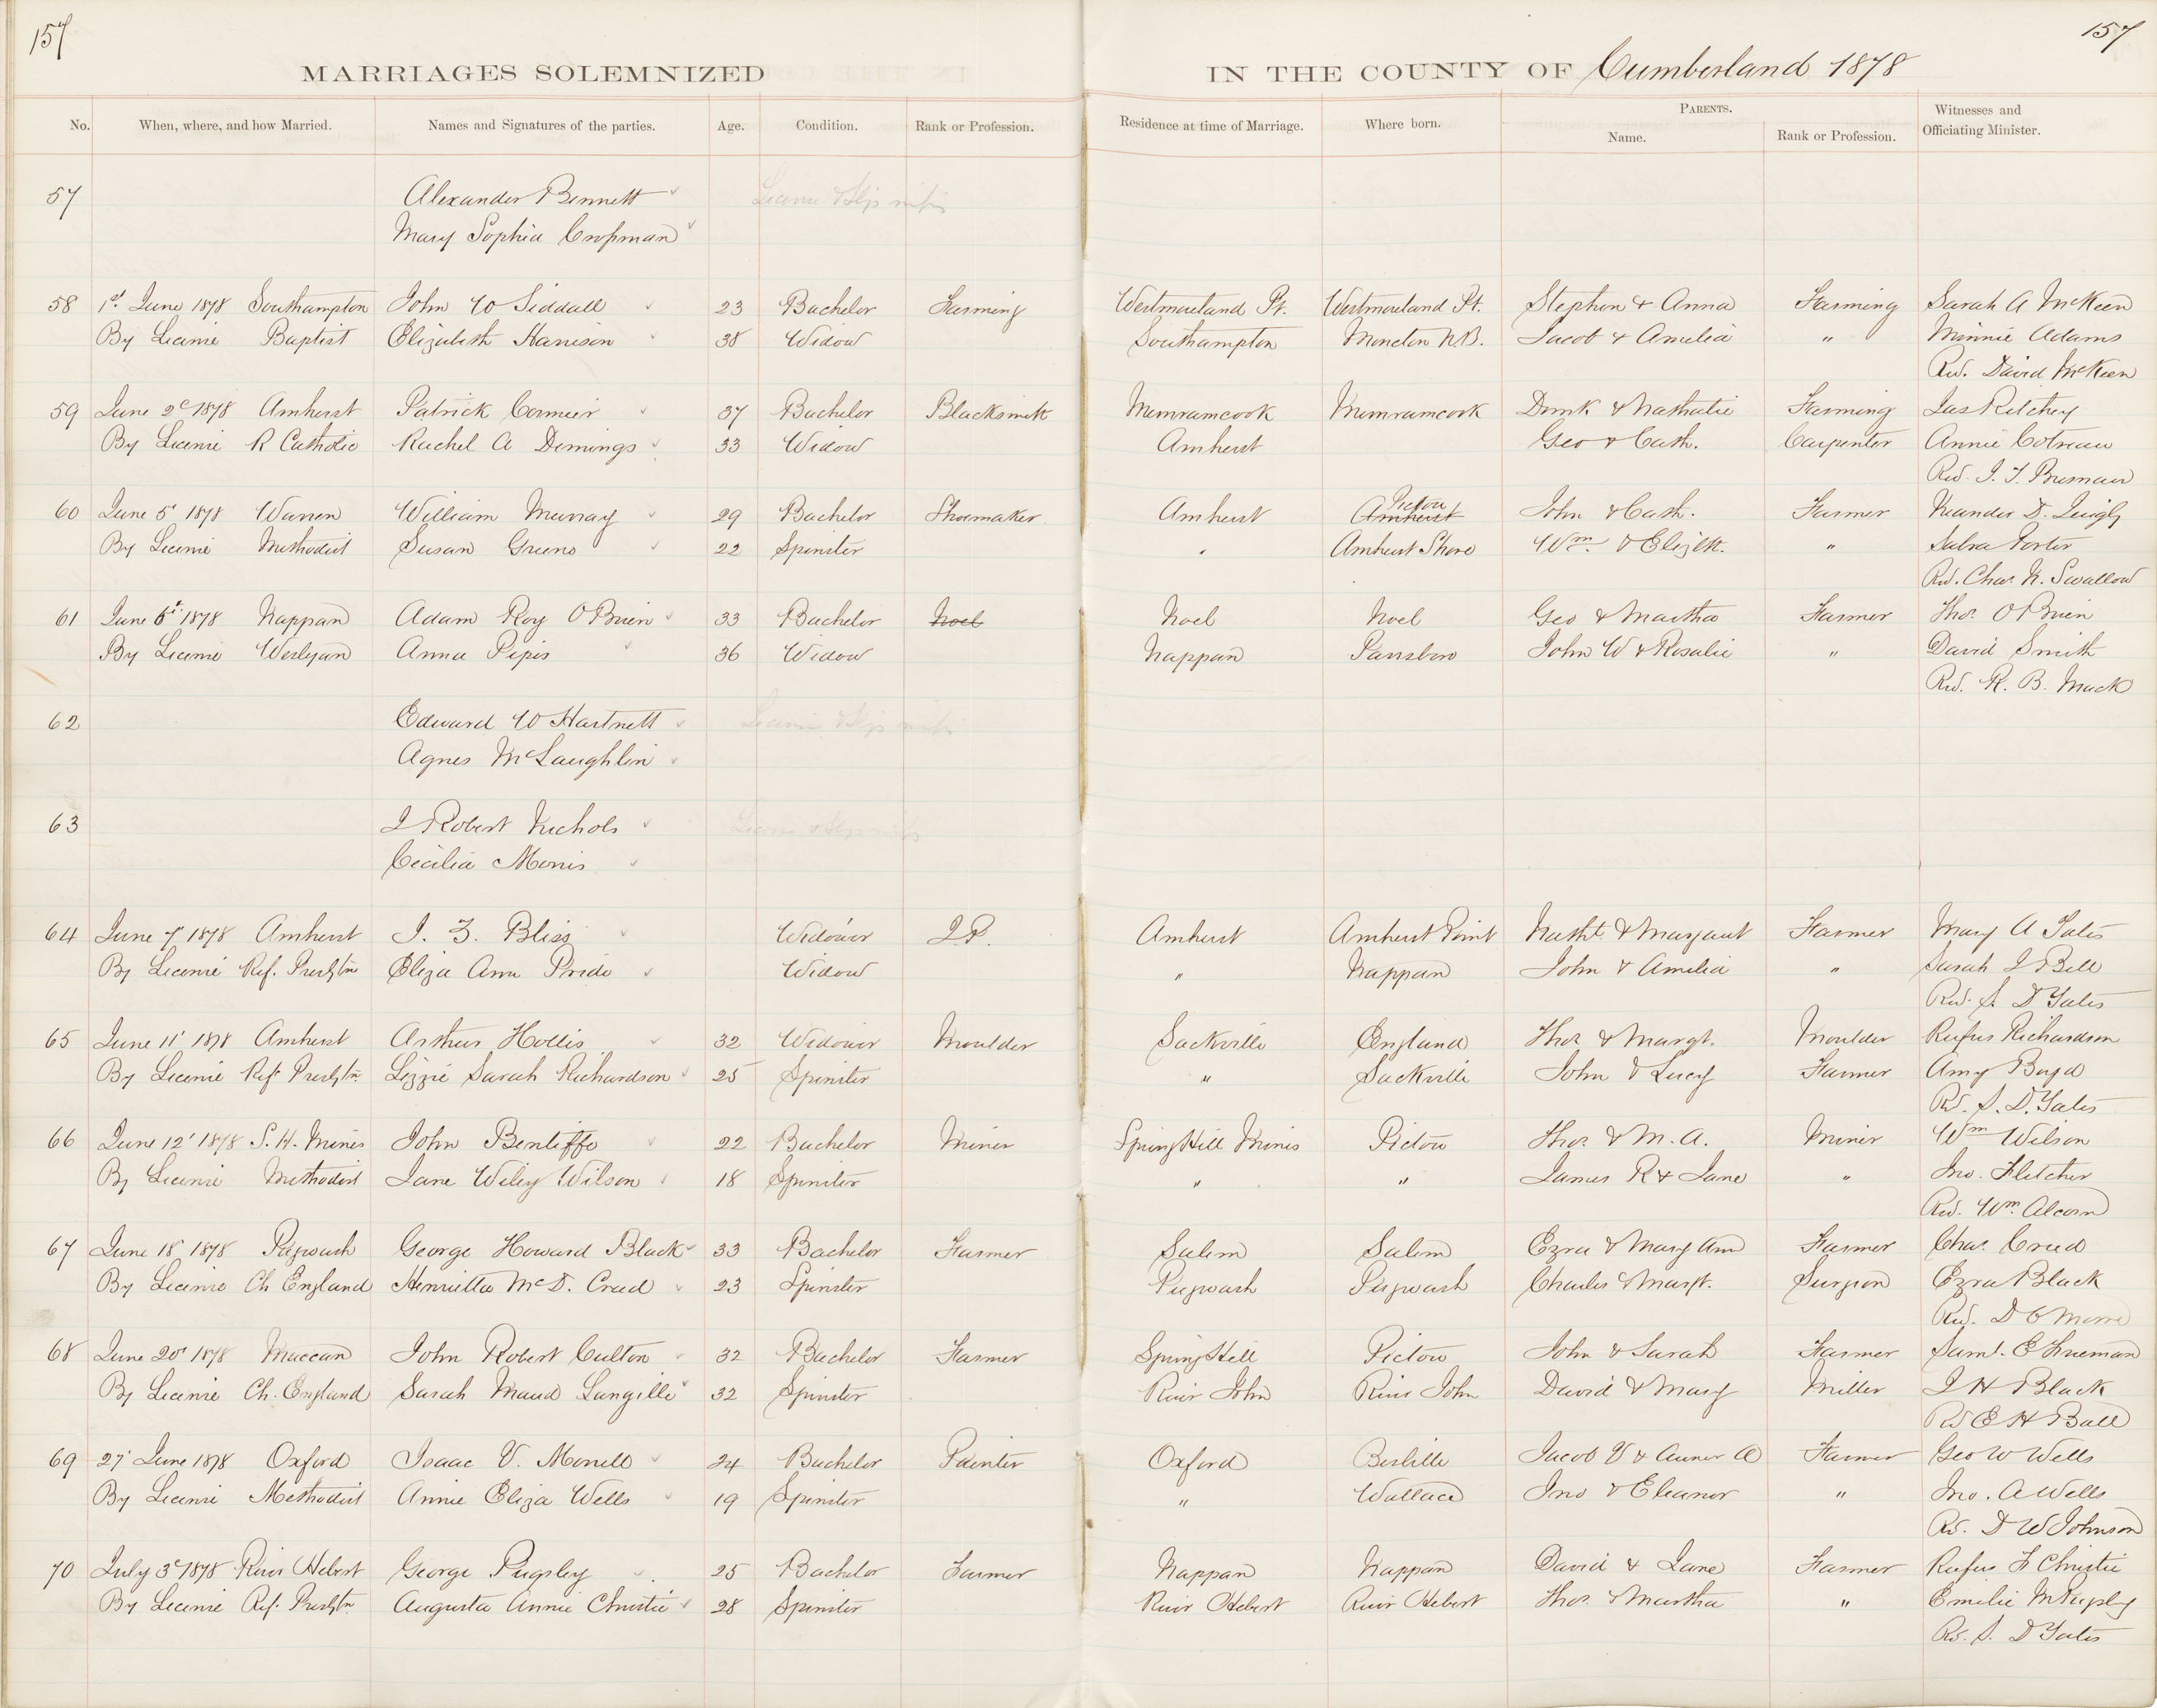 157
157
MARRIAGES SOLEMNIZED IN THE COUNTY OF Cumberland 1878
No. When, where, and how Married. Names and Signatures of the parties. Age. Condition. Rank or Profession. Residence at time of Marriage. Where born. PARENTS. Name. Rank or Profession. Witnesses and Officiating Minister.
57 Alexander Bennett
Mary Sophia Crossman
58 1st June 1878 Southampton John W Siddall 23 Bachelor Farming Westmoreland Pt. Westmoreland Pt. Stephen & Anna Farming Sarah A McKeen
By Licence Baptist Elizabeth Harrison 38 Widow Southampton Moncton N.B. Jacob & Amelia " Minnie Adams
Rev. David McKeen
59 June 2d 1878 Amherst Patrick Cormier 37 Bachelor Blacksmith Memramcook Memramcook & Farming Jas Ritchey
By Licence R Catholic Rachel A Demings 33 Widow Amherst Geo & Cath. Carpenter Annie
Rev.
60 June 5' 1878 Warren William Murray 29 Bachelor Shoemaker Amherst Pictou Amherst John & Cath. Farmer
By Licence Methodist Susan Greeno 22 Spinster " Amherst Shore Wm. & Elizth. "
Rev. Chas. W. Swallow
61 June 6t. 1878 Nappan Adam Roy O'Brien 33 Bachelor Noel Noel Noel Geo & Martha Farmer Thos. O'Brien
By Licence Wesleyan Anna Pipes 36 Widow Nappan Parrsboro John W & Rosalie " David Smith
Rev. R. B. Mack
62 Edward W Hartnett
Agnes McLaughlin
63 J Robert Nichols
Cecilia Morris
64 June 7' 1878 Amherst J. Z. Bliss Widower J.P. Amherst Amherst Point Nathl. & Margaret Farmer Mary A Yates
By Licence Ref. Presbytn Eliza Ann Pride Widow " Nappan John & Amelia " Sarah J Bell
Rev. S. D Yates
65 June 11' 1878 Amherst Arthur Hollis 32 Widower Moulder Sackville England Thos. & Margt. Moulder Rufus Richardson
By Licence Ref. Presbytn Lizzie Sarah Richardson 25 Spinster " Sackville John & Lucy Farmer Amy Boyd
Rev. S. D. Yates
66 June 12' 1878 S. H. Mines John Bentliffe 22 Bachelor Miner Spring Hill Mines Pictou Thos. & M. A. Miner Wm Wilson
By Licence Methodist Jane Wiley Wilson 18 Spinster " " James R & Jane " Jno. Fletcher
Rev. Wm. Alcorn
67 June 18' 1878 Pugwash George Howard Black 33 Bachelor Farmer Salem Salem Ezra & Mary Ann Farmer Chas. Creed
By Licence Ch England Henrietta McD. Creed 23 Spinster Pugwash Pugwash Charles & Margt. Surgeon Ezra Black
Rev. D C Moore
68 June 20' 1878 Maccan John Robert Culton 32 Bachelor Farmer Spring Hill Pictou John & Sarah Farmer Saml. E Freeman
By Licence Ch. England Sarah Maud Langille 32 Spinster River John River John David & Mary Miller J H Black
Rev E H Ball
69 27' June 1878 Oxford Isaac V. Morrell 24 Bachelor Painter Oxford Jacob V & A Farmer Geo W Wells
By Licence Methodist Annie Eliza Wells 19 Spinster " Wallace Jno & Eleanor " Jno. A Wells
Rev. D W Johnson
70 July 3d 1878 River Hebert George Pugsley 25 Bachelor Farmer Nappan Nappan David & Jane Farmer Rufus F Christie
By Licence Ref. Presbytn Augusta Annie Christie 28 Spinster River Hebert River Hebert Thos. & Martha " Emilie M Pugsley
Rev. S. D Yates